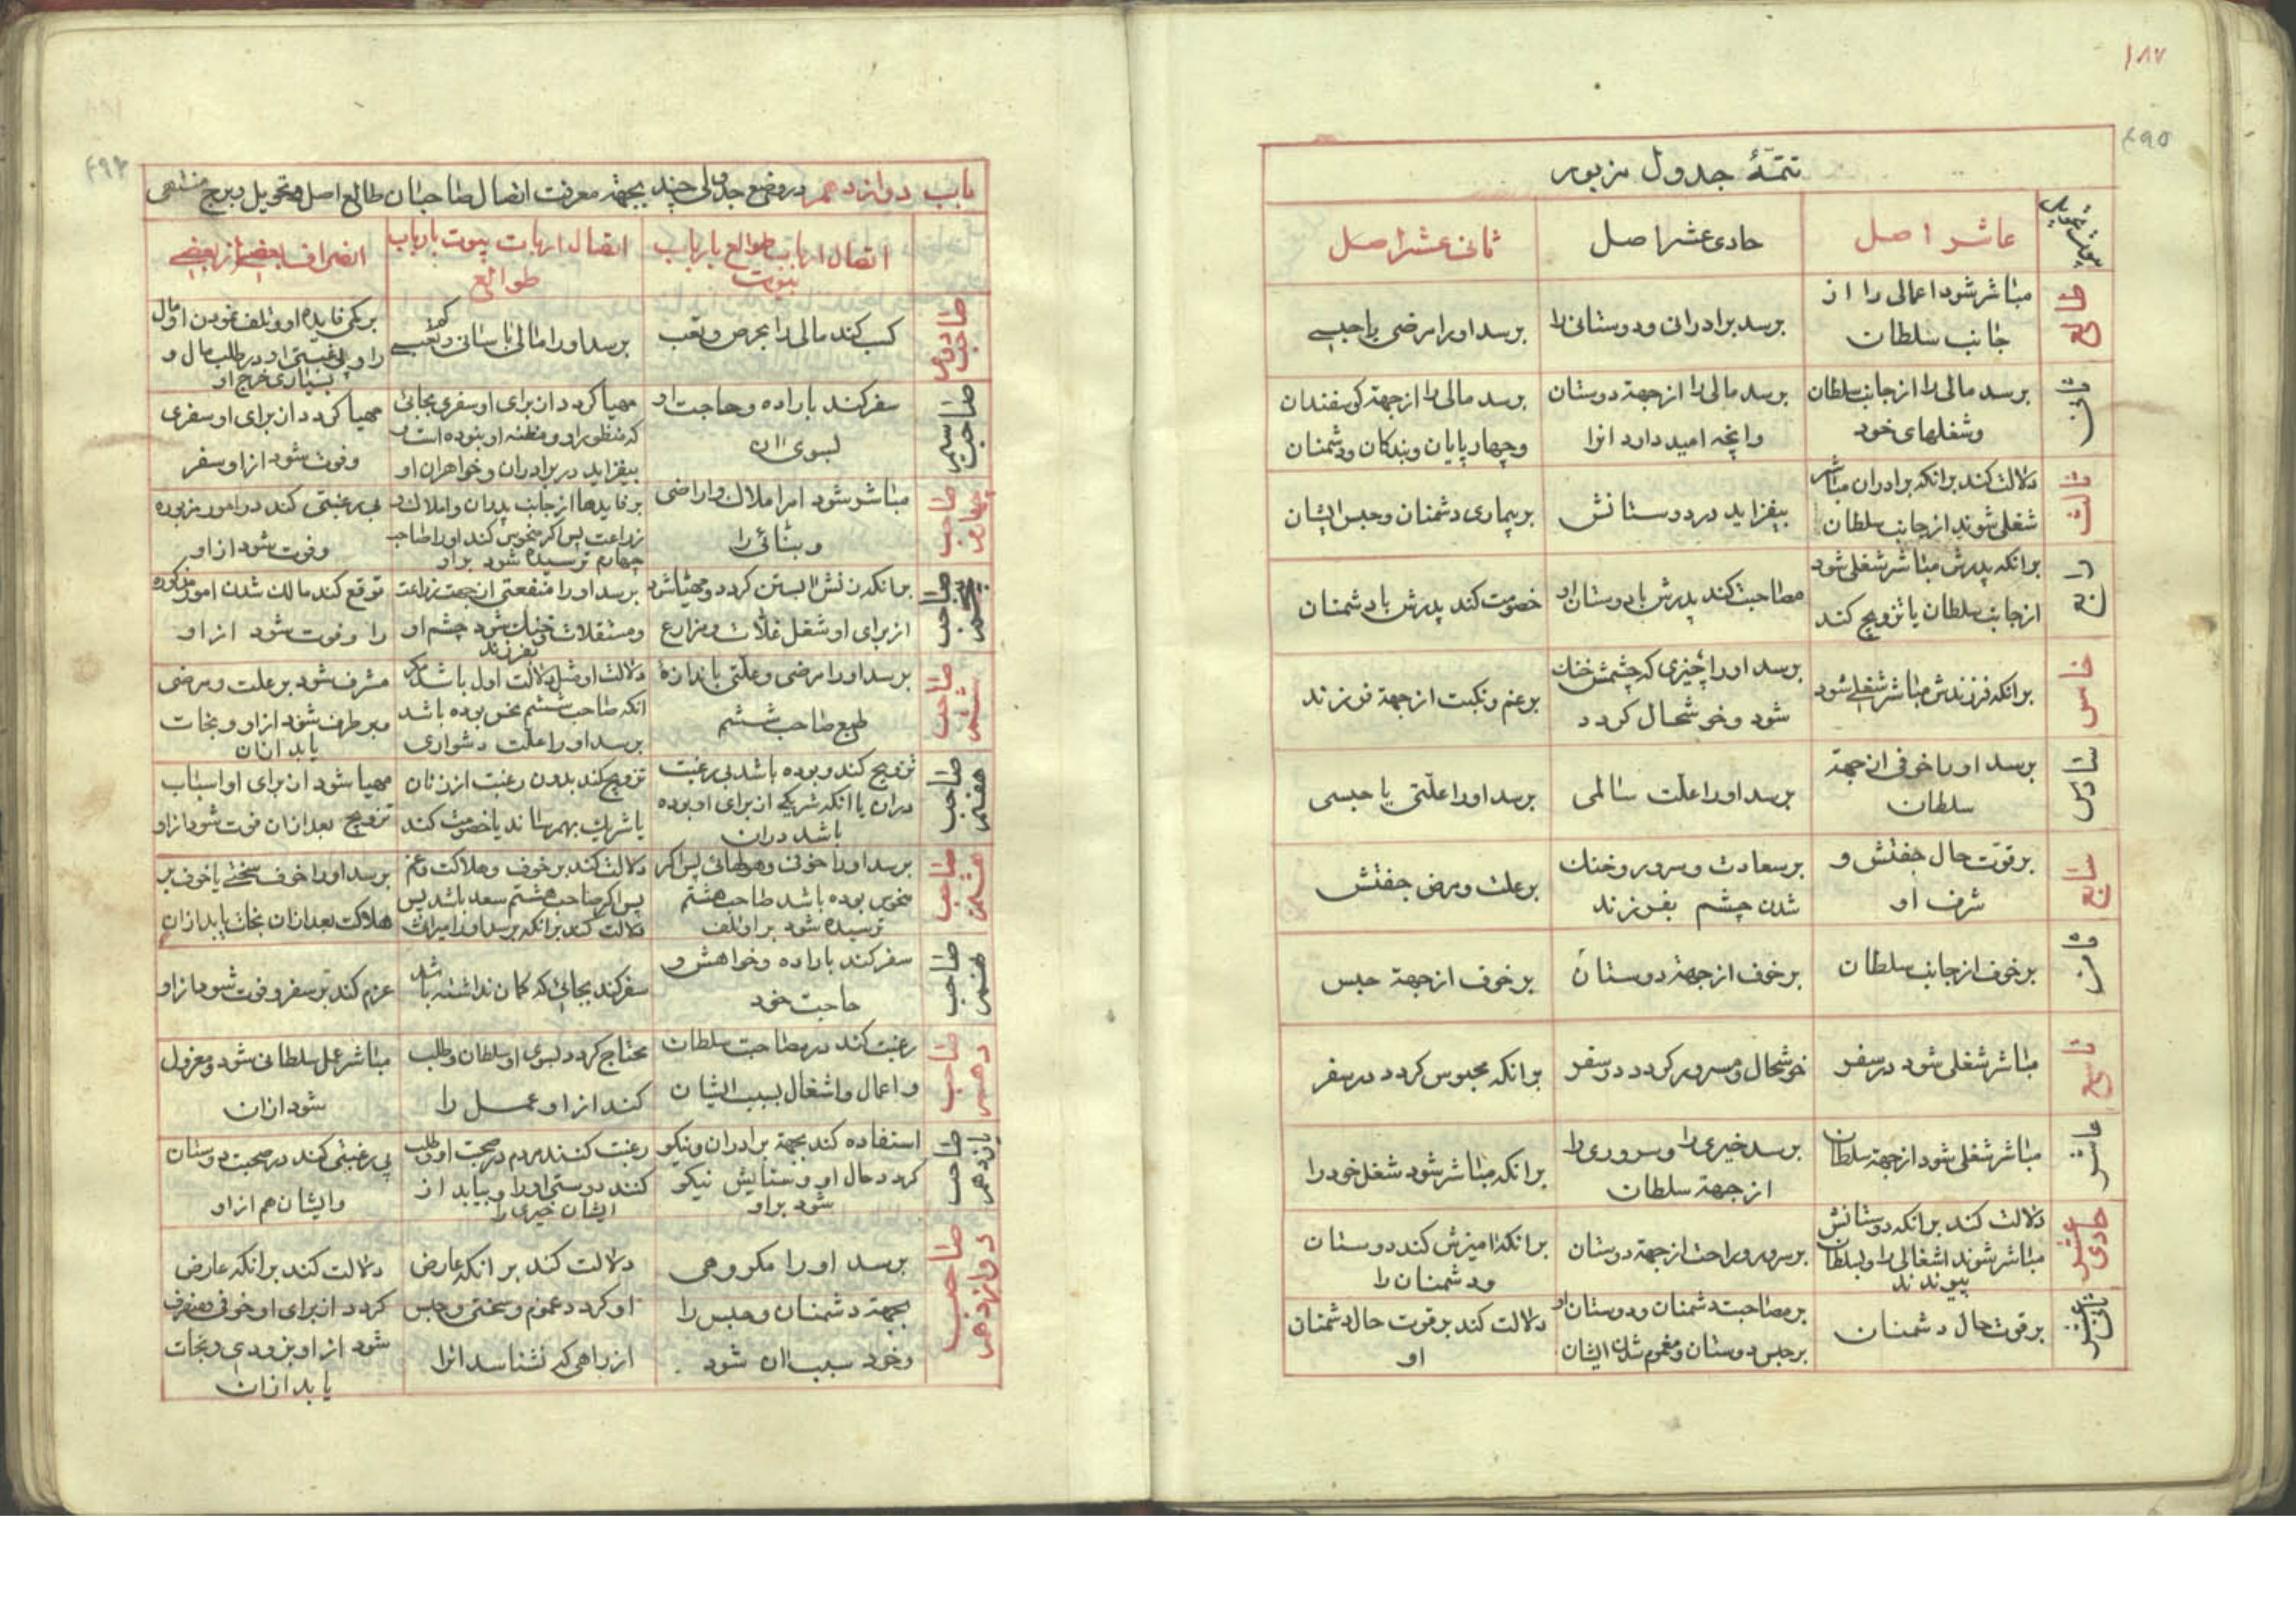 ۱۸۷
۴۹۵
تتمّهٔ جدول مزبور
عاشر اصل
حادی عشر اصل
ثانی عشر اصل
طالع
مباشر شود اعمالی را از
جانب سلطان
برسد برادران و دوستانی را
برسد او را مرضی یا حبسی
ثانی
برسد مالی را از جانب سلطان
و شغلهای خود
برسد مالی را از جهة دوستان
و آنچه امید دارد آنرا
برسد مالی را از جهة کوسفندان
و چهارپایان و بندکان و دشمنان
ثالث
دلالت کند برانکه برادران مباشر
شغلی شوند از جانب سلطان
بیفزاید در دوستانش
بر بیماری دشمنان و حبس ایشان
رابع
برانکه پدرش مباشر شغلی شود
از جانب سلطان یا تزویج کند
مصاحبت کند پدرش با دوستان او
خصومت کند پدرش با دشمنان
خامس
برانکه فرزندش مباشر شغلی شود
برسد او را چیزی که چشمش خنك
شود و خوشحال کردد
بر غم و نکبت از جهة فرزند
سادس
برسد او را خوفی از جهة
سلطان
برسد او را علت سالمی
برسد او را علّتی یا حبسی
سابع
بر قوّت حال جفتش و
شرف او
بر سعادت و سرور و خنك
شدن چشم بفرزند
بر علت و مرض جفتش
ثامن
بر خوف از جانب سلطان
بر خوف از جهة دوستان
بر خوف از جهة حبس
تاسع
مباشر شغلی شود در سفر
خوشحال و مسرور کردد در سفر
برانکه محبوس کردد در سفر
عاشر
مباشر شغلی شود از جهة سلطان
برسد خیری را و سروری را
از جهة سلطان
برانکه مباشر شود شغل خود را
حادی عشر
دلالت کند برانکه دوستانش
مباشر شوند اشغالی را و بسلطان
پیوندند
بر سرور و راحت از جهة دوستان
برانکه امیزش کند دوستان
و دشمنان را
ثانی عشر
بر قوت حال دشمنان
بر مصاحبت دشمنان و دوستان او
بر حبس دوستان و مغموم شدن ایشان
دلالت کند بر قوت حال دشمنان
او
۴۹۴
باب دوازدهم در وضع جدولی چند بجهة معرفت اتصال صاحبان طالع اصل و تحویل و برج منتهی
اتصال ارباب طوالع بارباب
بیوت
اتصال ارباب بیوت بارباب
طوالع
انصراف بعضی از بعضی
صاحب دوم
کسب کند مالی را بحرص و تعب
برسد او را مالی باسانی و تعبی
بر کمی فایده او و تلف نمودن او مال
را و بی رغبتی او در طلب مال و
بسیاری خرج او
صاحب سیم
سفر کند باراده و حاجت او
بسوی آن
مهیا کردد از برای او سفری بجائی
که منظور او و مظنه او نبوده است و
بیفزاید در برادران و خواهران او
مهیا کردد از برای او سفری
و فوت شود از او سفر
صاحب چهارم
مباشر شود امر املاك و اراضی
و بنائی را
بر فایدها از جانب پدران و املاك و
زراعت پس اکر منحوس کند او را صاحب
چهارم ترسیده شود بر او
بی رغبتی کند در امور مزبوره
و فوت شود از او
صاحب پنجم
برانکه زنش ابستن کردد و مهیا شود
از برای او شغل غلّات و مزارع
برسد او را منفعتی از جهت زراعت
و مستقلات و خنك شود چشم او
بفرزند
توقع کند مالك شدن امور مذکوره
را و فوت شود از او
صاحب ششم
برسد او را مرضی و علّتی باندازهٔ
طبع صاحب ششم
دلالت او مثل دلالت اول باشد مکر
انکه صاحب ششم نحس بوده باشد
برسد او را علت دشواری
مشرف شود بر علت و مرضی
و برطرف شود از او و نجات
یابد از آن
صاحب هفتم
تزویج کند و بوده باشد بی رغبت
در ان یا انکه شریکی از برای او بوده
باشد در ان
تزویج کند بدون رغبت از زنان
یا شریك بهم رساند یا خصومت کند
مهیا شود از برای او اسباب
تزویج بعد از ان فوت شود از او
صاحب هشتم
برسد او را خوفی و هولهائی پس اکر
منحوس بوده باشد صاحب هشتم
ترسیده شود بر او تلف
دلالت کند بر خوف و هلاکت و غم
پس اکر صاحب هشتم سعد باشد پس
دلالت کند برانکه برسد او را میراث
برسد او را خوف سختی یا خوف بر
هلاکت بعد از ان نجات یابد از ان
صاحب نهم
سفر کند باراده و خواهش و
حاجت خود
سفر کند بجائی که کمان نداشته باشد
عزم کند بر سفر و فوت شود از او
صاحب دهم
رغبت کند در مصاحبت سلطان
و اعمال و اشغال بسبب ایشان
محتاج کردد بسوی او سلطان و طلب
کند از او عمل را
مباشر عمل سلطانی شود و معزول
شود از ان
صاحب یازدهم
استفاده کند بجهة برادران و نیکو
کردد حال او و ستایش نیکو
شود بر او
رغبت کنند مردم در صحبت او و طلب
کنند دوستی او را و بیابد از
ایشان خیری را
بی رغبتی کند در صحبت دوستان
و ایشان هم از او
صاحب دوازدهم
برسد او را مکروهی
بجهة دشمنان و حبس را
و خود سبب ان شود
دلالت کند برانکه عارض
او کردد غموم و سختی و حبس
از راهی که نشناسد انرا
دلالت کند برانکه عارض
کردد از برای او خوفی و منصرف
شود از او بزودی و نجات
یابد از ان